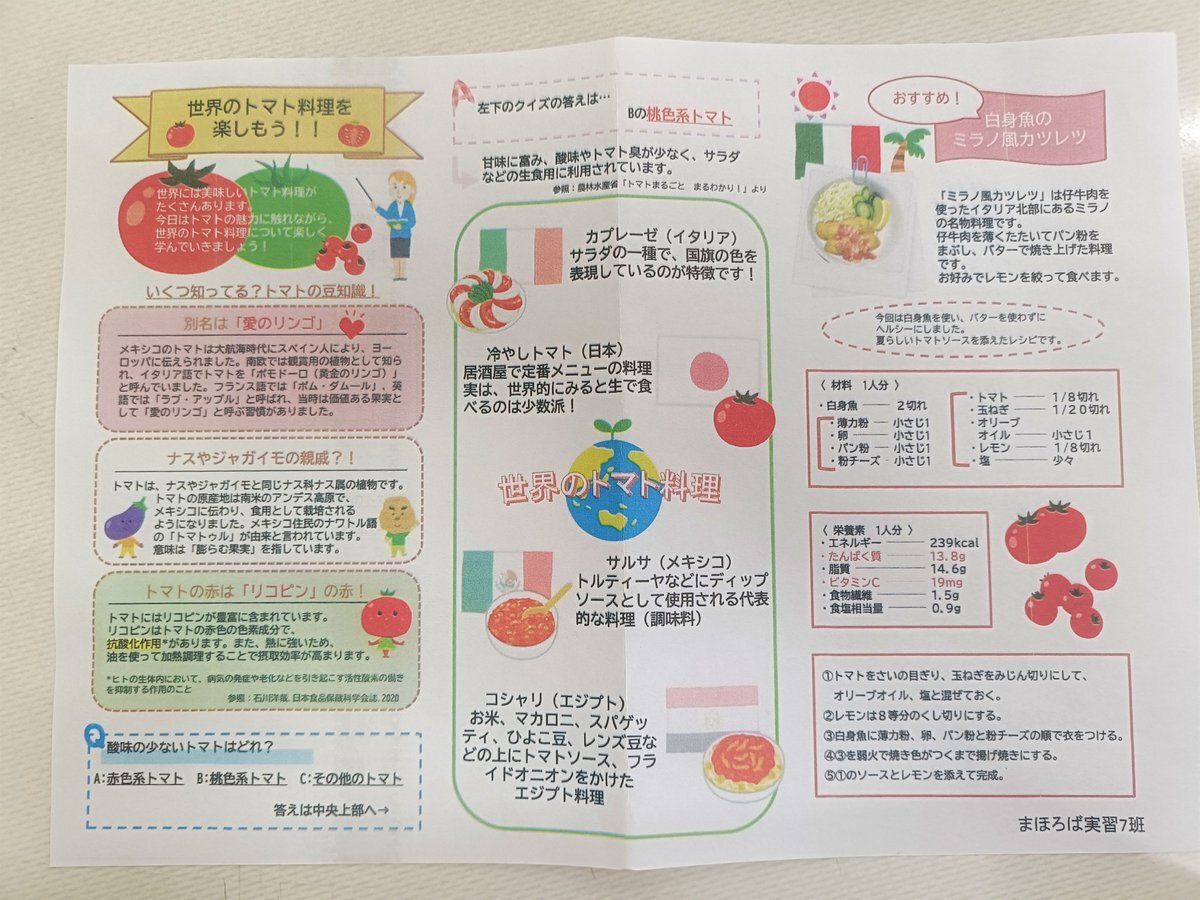 世界のトマト料理を
楽しもう！！
世界には美味しいトマト料理が
たくさんあります。
今日はトマトの魅力に触れながら、
世界のトマト料理について楽しく
学んでいきましょう！
いくつ知ってる？トマトの豆知識！
別名は「愛のリンゴ」
メキシコのトマトは大航海時代にスペイン人により、ヨー
ロッパに伝えられました。南欧では観賞用の植物として知ら
れ、イタリア語でトマトを「ポモドーロ（黄金のリンゴ）」
と呼んでいました。フランス語では「ポム・ダムール」、英
語では「ラブ・アップル」と呼ばれ、当時は価値ある果実と
して「愛のリンゴ」と呼ぶ習慣がありました。
ナスやジャガイモの親戚？！
トマトは、ナスやジャガイモと同じナス科ナス属の植物です。
トマトの原産地は南米のアンデス高原で、
メキシコに伝わり、食用として栽培される
ようになりました。メキシコ住民のナワトル語
の「トマトゥル」が由来と言われています。
意味は「膨らむ果実」を指しています。
トマトの赤は「リコピン」の赤！
トマトにはリコピンが豊富に含まれています。
リコピンはトマトの赤色の色素成分で、
抗酸化作用*があります。また、熱に強いため、
油を使って加熱調理することで摂取効率が高まります。
*ヒトの生体内において、病気の発症や老化などを引き起こす活性酸素の働き
を抑制する作用のこと
参照：石川洋哉, 日本食品保蔵科学会誌, 2020
Q
酸味の少ないトマトはどれ？
A:赤色系トマト B:桃色系トマト C:その他のトマト
答えは中央上部へ→
A
左下のクイズの答えは…
Bの桃色系トマト
甘味に富み、酸味やトマト臭が少なく、サラダ
などの生食用に利用されています。
参照：農林水産省「トマトまるごと まるわかり！」より
カプレーゼ（イタリア）
サラダの一種で、国旗の色を
表現しているのが特徴です！
冷やしトマト（日本）
居酒屋で定番メニューの料理
実は、世界的にみると生で食
べるのは少数派！
世界のトマト料理
サルサ（メキシコ）
トルティーヤなどにディップ
ソースとして使用される代表
的な料理（調味料）
コシャリ（エジプト）
お米、マカロニ、スパゲッ
ティ、ひよこ豆、レンズ豆な
どの上にトマトソース、フラ
イドオニオンをかけた
エジプト料理
おすすめ！
白身魚の
ミラノ風カツレツ
「ミラノ風カツレツ」は仔牛肉を
使ったイタリア北部にあるミラノ
の名物料理です。
仔牛肉を薄くたたいてパン粉を
まぶし、バターで焼き上げた料理
です。
お好みでレモンを絞って食べます。
今回は白身魚を使い、バターを使わずに
ヘルシーにしました。
夏らしいトマトソースを添えたレシピです。
〈 材料 1人分 〉
・白身魚 ―― 2切れ
・薄力粉 ― 小さじ1
・卵 ― 小さじ1
・パン粉 ― 小さじ1
・粉チーズ - 小さじ1
・トマト ――― 1/8切れ
・玉ねぎ ――― 1/20切れ
・オリーブ
オイル ――小さじ1
・レモン ――― 1/8切れ
・塩 ――― 少々
〈 栄養素 1人分 〉
・エネルギー ――― 239kcal
・たんぱく質 ――― 13.8g
・脂質 ――― 14.6g
・ビタミンC ――― 19mg
・食物繊維 ――― 1.5g
・食塩相当量 ――― 0.9g
①トマトをさいの目ぎり、玉ねぎをみじん切りにして、
オリーブオイル、塩と混ぜておく。
②レモンは8等分のくし切りにする。
③白身魚に薄力粉、卵、パン粉と粉チーズの順で衣をつける。
④③を弱火で焼き色がつくまで揚げ焼きにする。
⑤①のソースとレモンを添えて完成。
まほろば実習7班